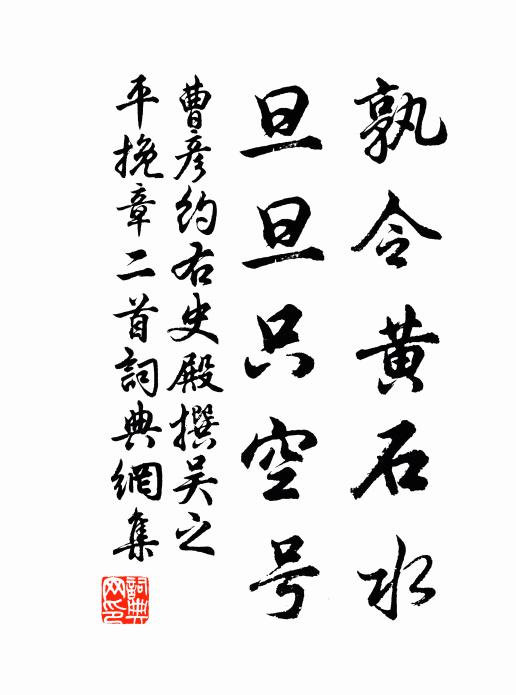 孰令黄石水
旦旦只空号
曹彦约右史殿撰吴之
平挽章二首詞典網集
詞典網印